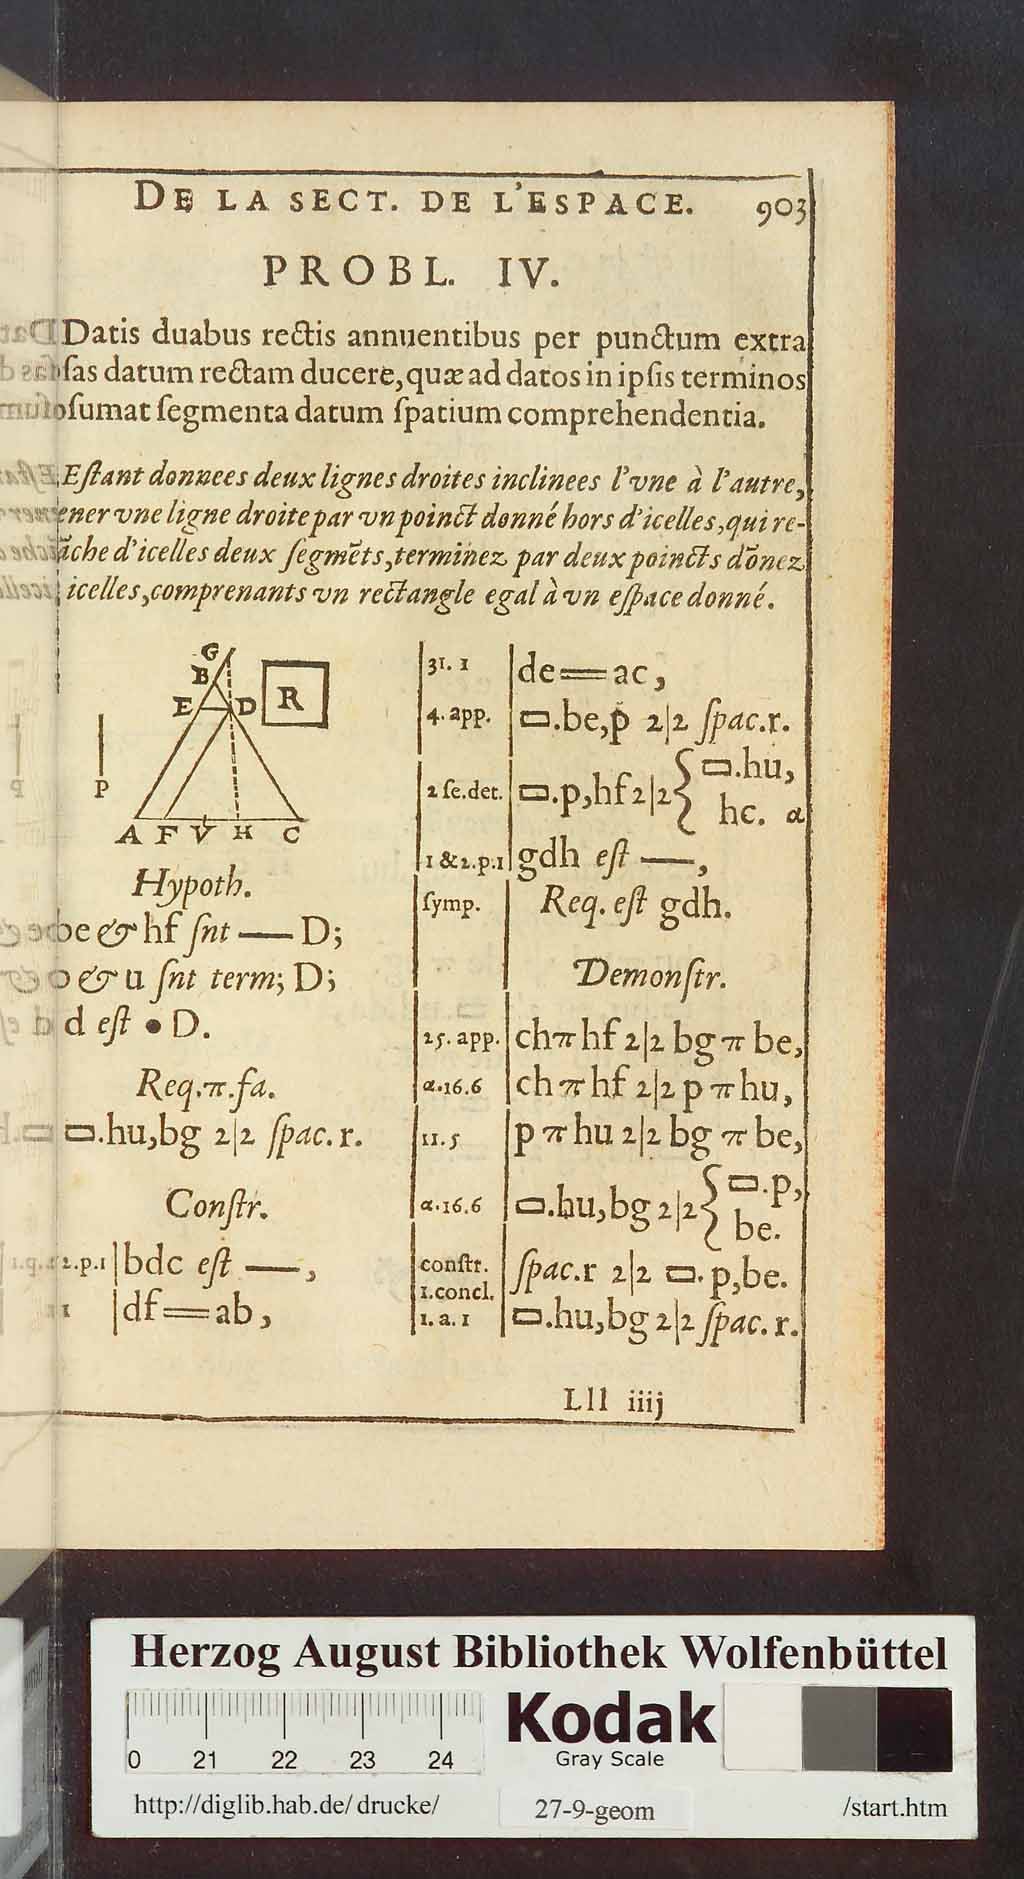 DE LA SECT. DE L'ESPACE. 903
PROBL. IV.
Datis duabus rectis annuentibus per punctum extra
ſas datum rectam ducere, quæ ad datos in ipſis terminos
ſumat ſegmenta datum ſpatium comprehendentia.
Eſtant donnees deux lignes droites inclinees l'vne à l'autre,
ener vne ligne droite par vn poinct donné hors d'icelles, qui re-
ãche d'icelles deux ſegmẽts, terminez par deux poincts dõnez
icelles, comprenants vn rectangle egal à vn eſpace donné.
G
B
E D R
P
A F V H C
Hypoth.
be & hf ſnt — D;
& u ſnt term; D;
d eſt • D.
Req. π. fa.
▭.hu,bg 2|2 ſpac. r.
Conſtr.
2.p.1 | bdc eſt —,
1 | df══ab,
31. 1 | de══ac,
4. app. | ▭.be,p 2|2 ſpac.r.
2 ſe.det. | ▭.p,hf 2|2 { ▭.hu,
hc. α
1 & 2.p.1 | gdh eſt —,
ſymp. | Req. eſt gdh.
Demonſtr.
25. app. | ch π hf 2|2 bg π be,
α.16.6 | ch π hf 2|2 p π hu,
11.5 | p π hu 2|2 bg π be,
α.16.6 | ▭.hu,bg 2|2 { ▭.p,
be.
conſtr. | ſpac.r 2|2 ▭.p,be.
1.concl.
1. a. 1 | ▭.hu,bg 2|2 ſpac. r.
Lll iiij
Herzog August Bibliothek Wolfenbüttel
0 21 22 23 24
Kodak
Gray Scale
http://diglib.hab.de/drucke/ 27-9-geom /start.htm